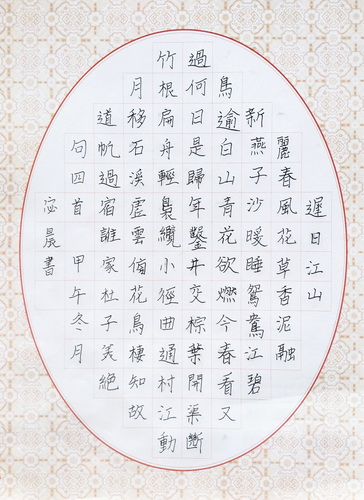 遲日江山
麗春風花草香泥融
新燕子沙暖睡鴛鴦江碧
鳥逾白山青花欲燃今春看又
過何日是歸年鑿井交棕葉開渠斷
竹根扁舟輕裊纜小徑曲通村江動
月移石溪虛雲傍花鳥棲知故
道帆過宿誰家杜子美絕
句四首甲午冬月
宓晨書